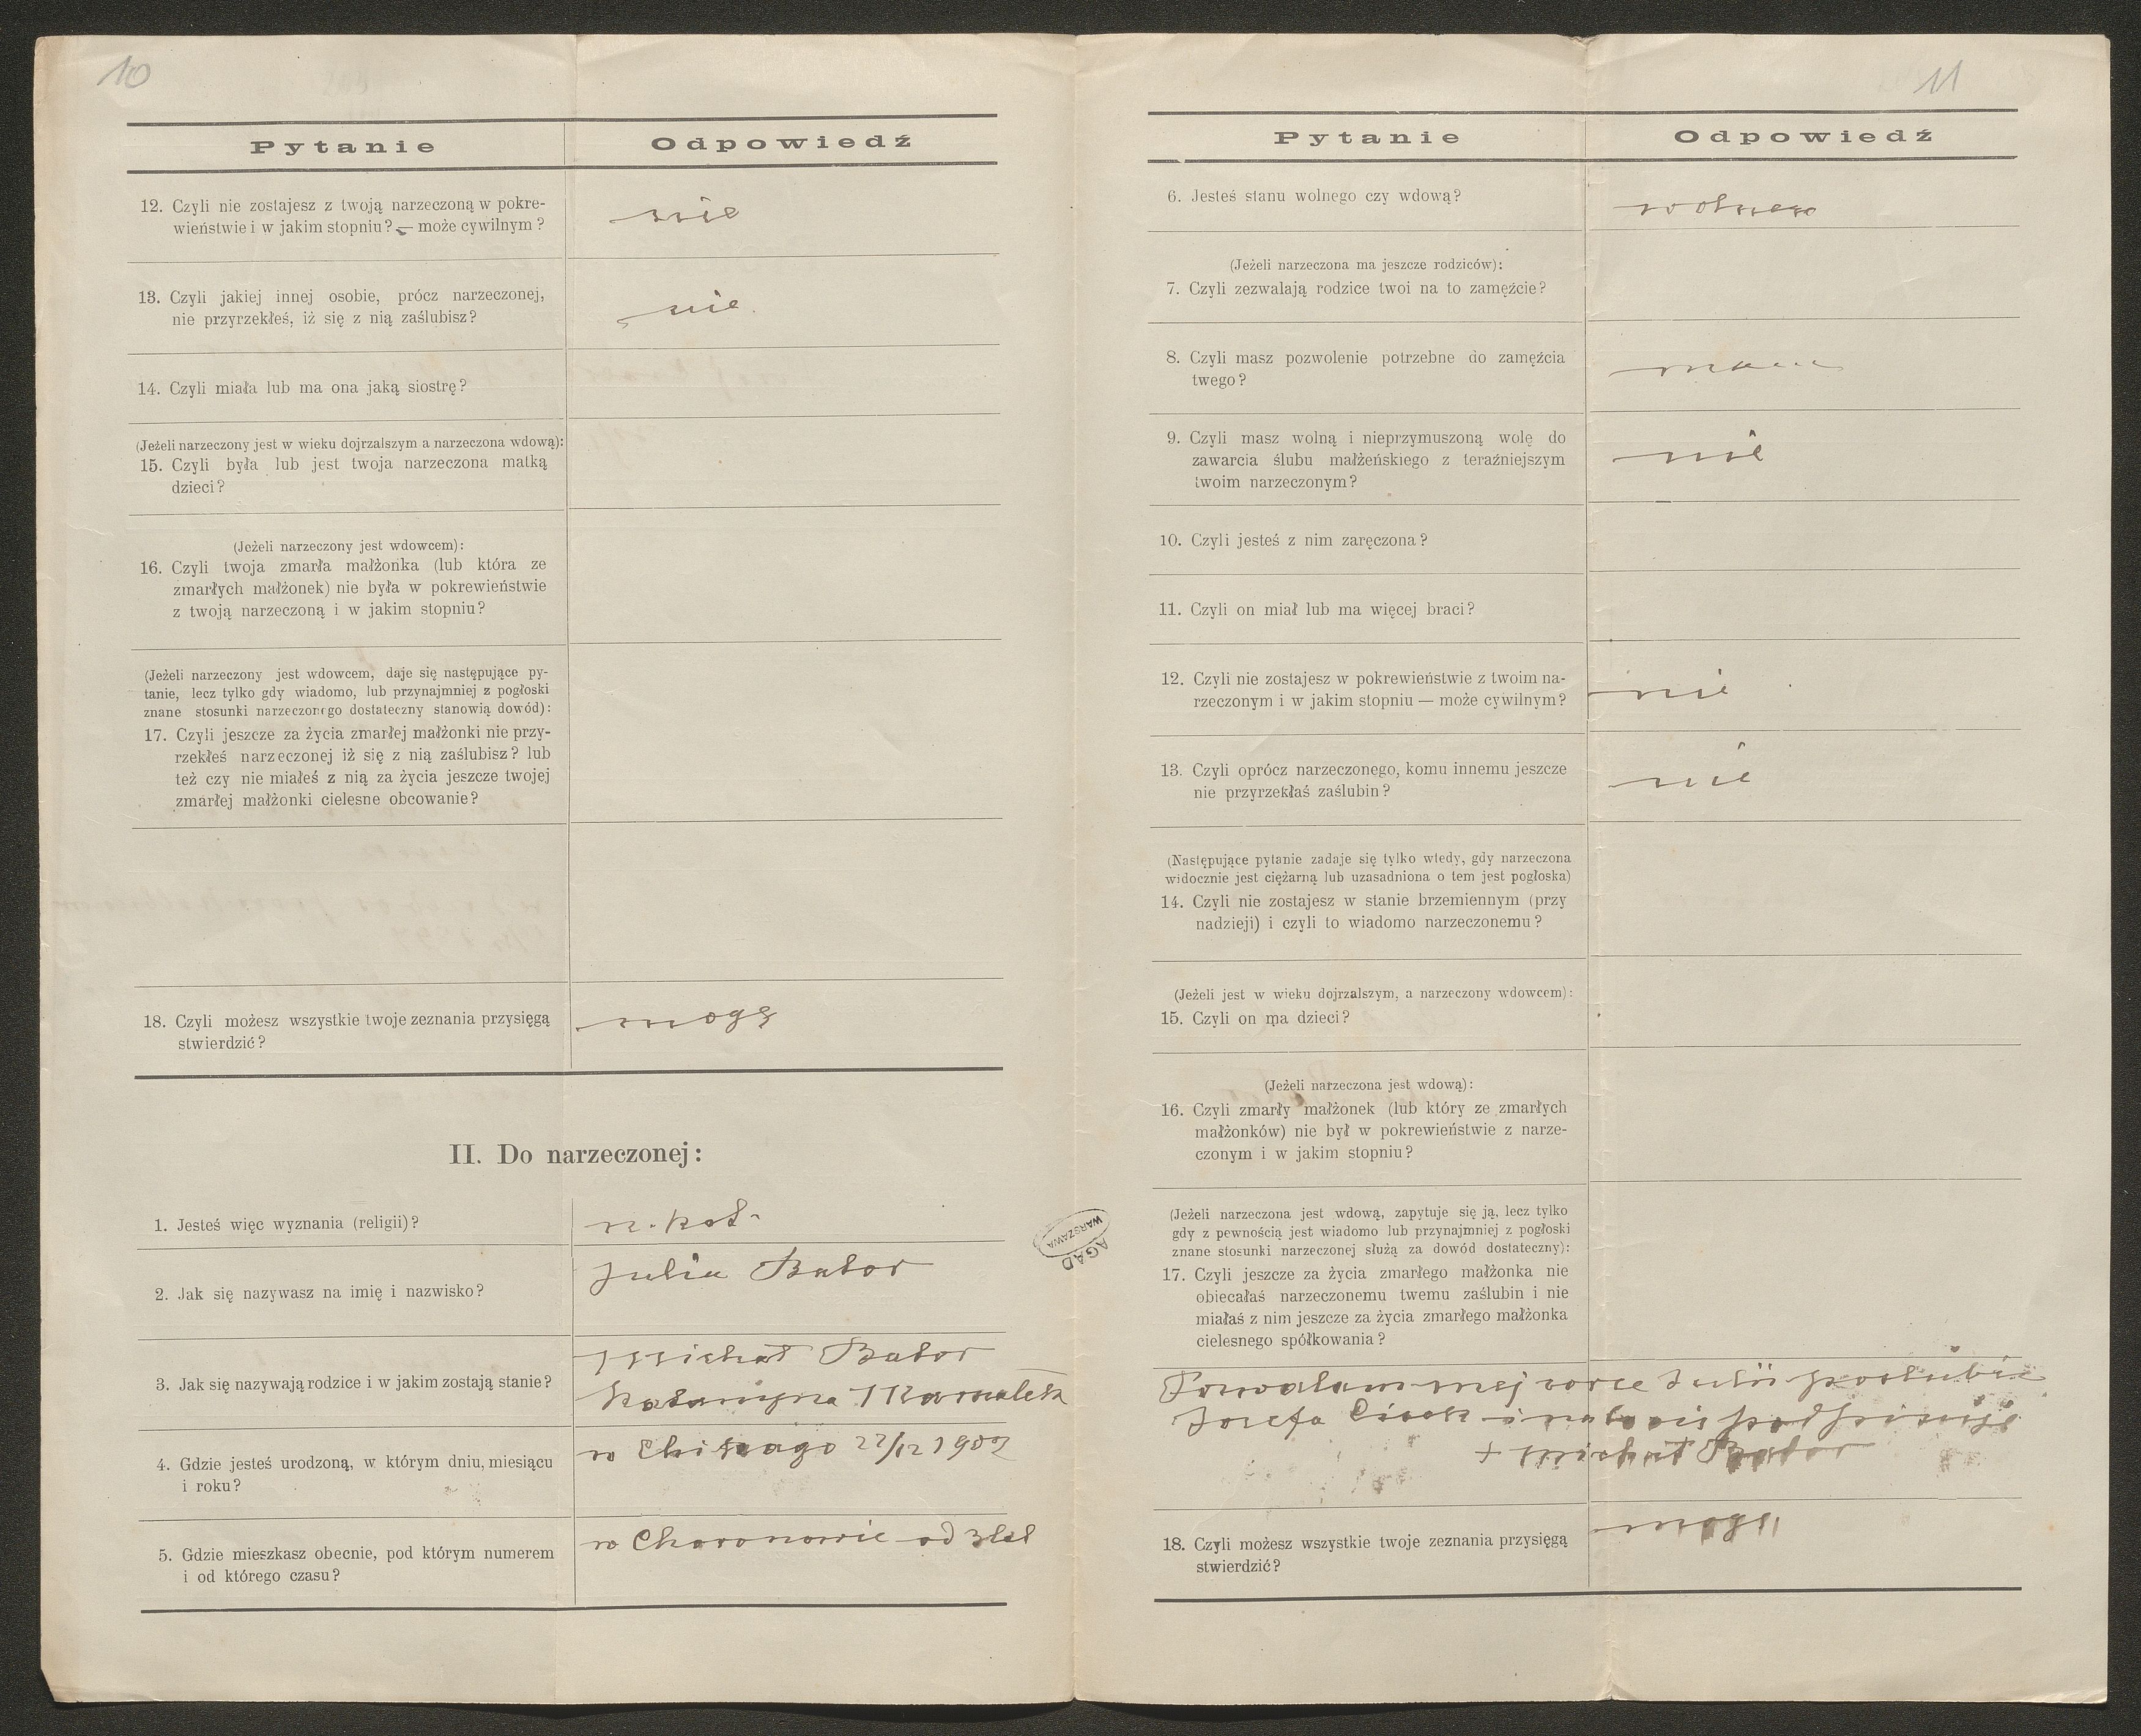 10
Pytanie
Odpowiedź
12. Czyli nie zostajesz z twoją narzeczoną w pokre-
wieństwie i w jakim stopniu? — może cywilnym?
nie
13. Czyli jakiej innej osobie, prócz narzeczonej,
nie przyrzekłeś, iż się z nią zaślubisz?
nie
14. Czyli miała lub ma ona jaką siostrę?
(Jeżeli narzeczony jest w wieku dojrzalszym a narzeczona wdową):
15. Czyli była lub jest twoja narzeczona matką
dzieci?
(Jeżeli narzeczony jest wdowcem):
16. Czyli twoja zmarła małżonka (lub która ze
zmarłych małżonek) nie była w pokrewieństwie
z twoją narzeczoną i w jakim stopniu?
(Jeżeli narzeczony jest wdowcem, daje się następujące py-
tanie, lecz tylko gdy wiadomo, lub przynajmniej z pogłoski
znane stosunki narzeczonego dostateczny stanowią dowód):
17. Czyli jeszcze za życia zmarłej małżonki nie przy-
rzekłeś narzeczonej iż się z nią zaślubisz? lub
też czy nie miałeś z nią za życia jeszcze twojej
zmarłej małżonki cielesne obcowanie?
18. Czyli możesz wszystkie twoje zeznania przysięgą
stwierdzić?
mogę
II. Do narzeczonej:
1. Jesteś więc wyznania (religii)?
r. kat.
2. Jak się nazywasz na imię i nazwisko?
Julia Bator
3. Jak się nazywają rodzice i w jakim zostają stanie?
Michał Bator
Katarzyna
4. Gdzie jesteś urodzoną, w którym dniu, miesiącu
i roku?
w Chicago 22/12 1907
5. Gdzie mieszkasz obecnie, pod którym numerem
i od którego czasu?
w Choronowie od 3 lat
AGAD
WARSZAWA
11
Pytanie
Odpowiedź
6. Jesteś stanu wolnego czy wdową?
wolnego
(Jeżeli narzeczona ma jeszcze rodziców):
7. Czyli zezwalają rodzice twoi na to zamęźcie?
8. Czyli masz pozwolenie potrzebne do zamęźcia
twego?
mam
9. Czyli masz wolną i nieprzymuszoną wolę do
zawarcia ślubu małżeńskiego z teraźniejszym
twoim narzeczonym?
nie
10. Czyli jesteś z nim zaręczona?
11. Czyli on miał lub ma więcej braci?
12. Czyli nie zostajesz w pokrewieństwie z twoim na-
rzeczonym i w jakim stopniu — może cywilnym?
nie
13. Czyli oprócz narzeczonego, komu innemu jeszcze
nie przyrzekłaś zaślubin?
nie
(Następujące pytanie zadaje się tylko wtedy, gdy narzeczona
widocznie jest ciężarną lub uzasadniona o tem jest pogłoska)
14. Czyli nie zostajesz w stanie brzemiennym (przy
nadzieji) i czyli to wiadomo narzeczonemu?
(Jeżeli jest w wieku dojrzalszym, a narzeczony wdowcem):
15. Czyli on ma dzieci?
(Jeżeli narzeczona jest wdową):
16. Czyli zmarły małżonek (lub który ze zmarłych
małżonków) nie był w pokrewieństwie z narze-
czonym i w jakim stopniu?
(Jeżeli narzeczona jest wdową, zapytuje się ją, lecz tylko
gdy z pewnością jest wiadomo lub przynajmniej z pogłoski
znane stosunki narzeczonej służą za dowód dostateczny):
17. Czyli jeszcze za życia zmarłego małżonka nie
obiecałaś narzeczonemu twemu zaślubin i nie
miałaś z nim jeszcze za życia zmarłego małżonka
cielesnego spółkowania?
mej corce Julii poslubić
Josefa i podpisuję
+ Michał Bator
18. Czyli możesz wszystkie twoje zeznania przysięgą
stwierdzić?
mogę